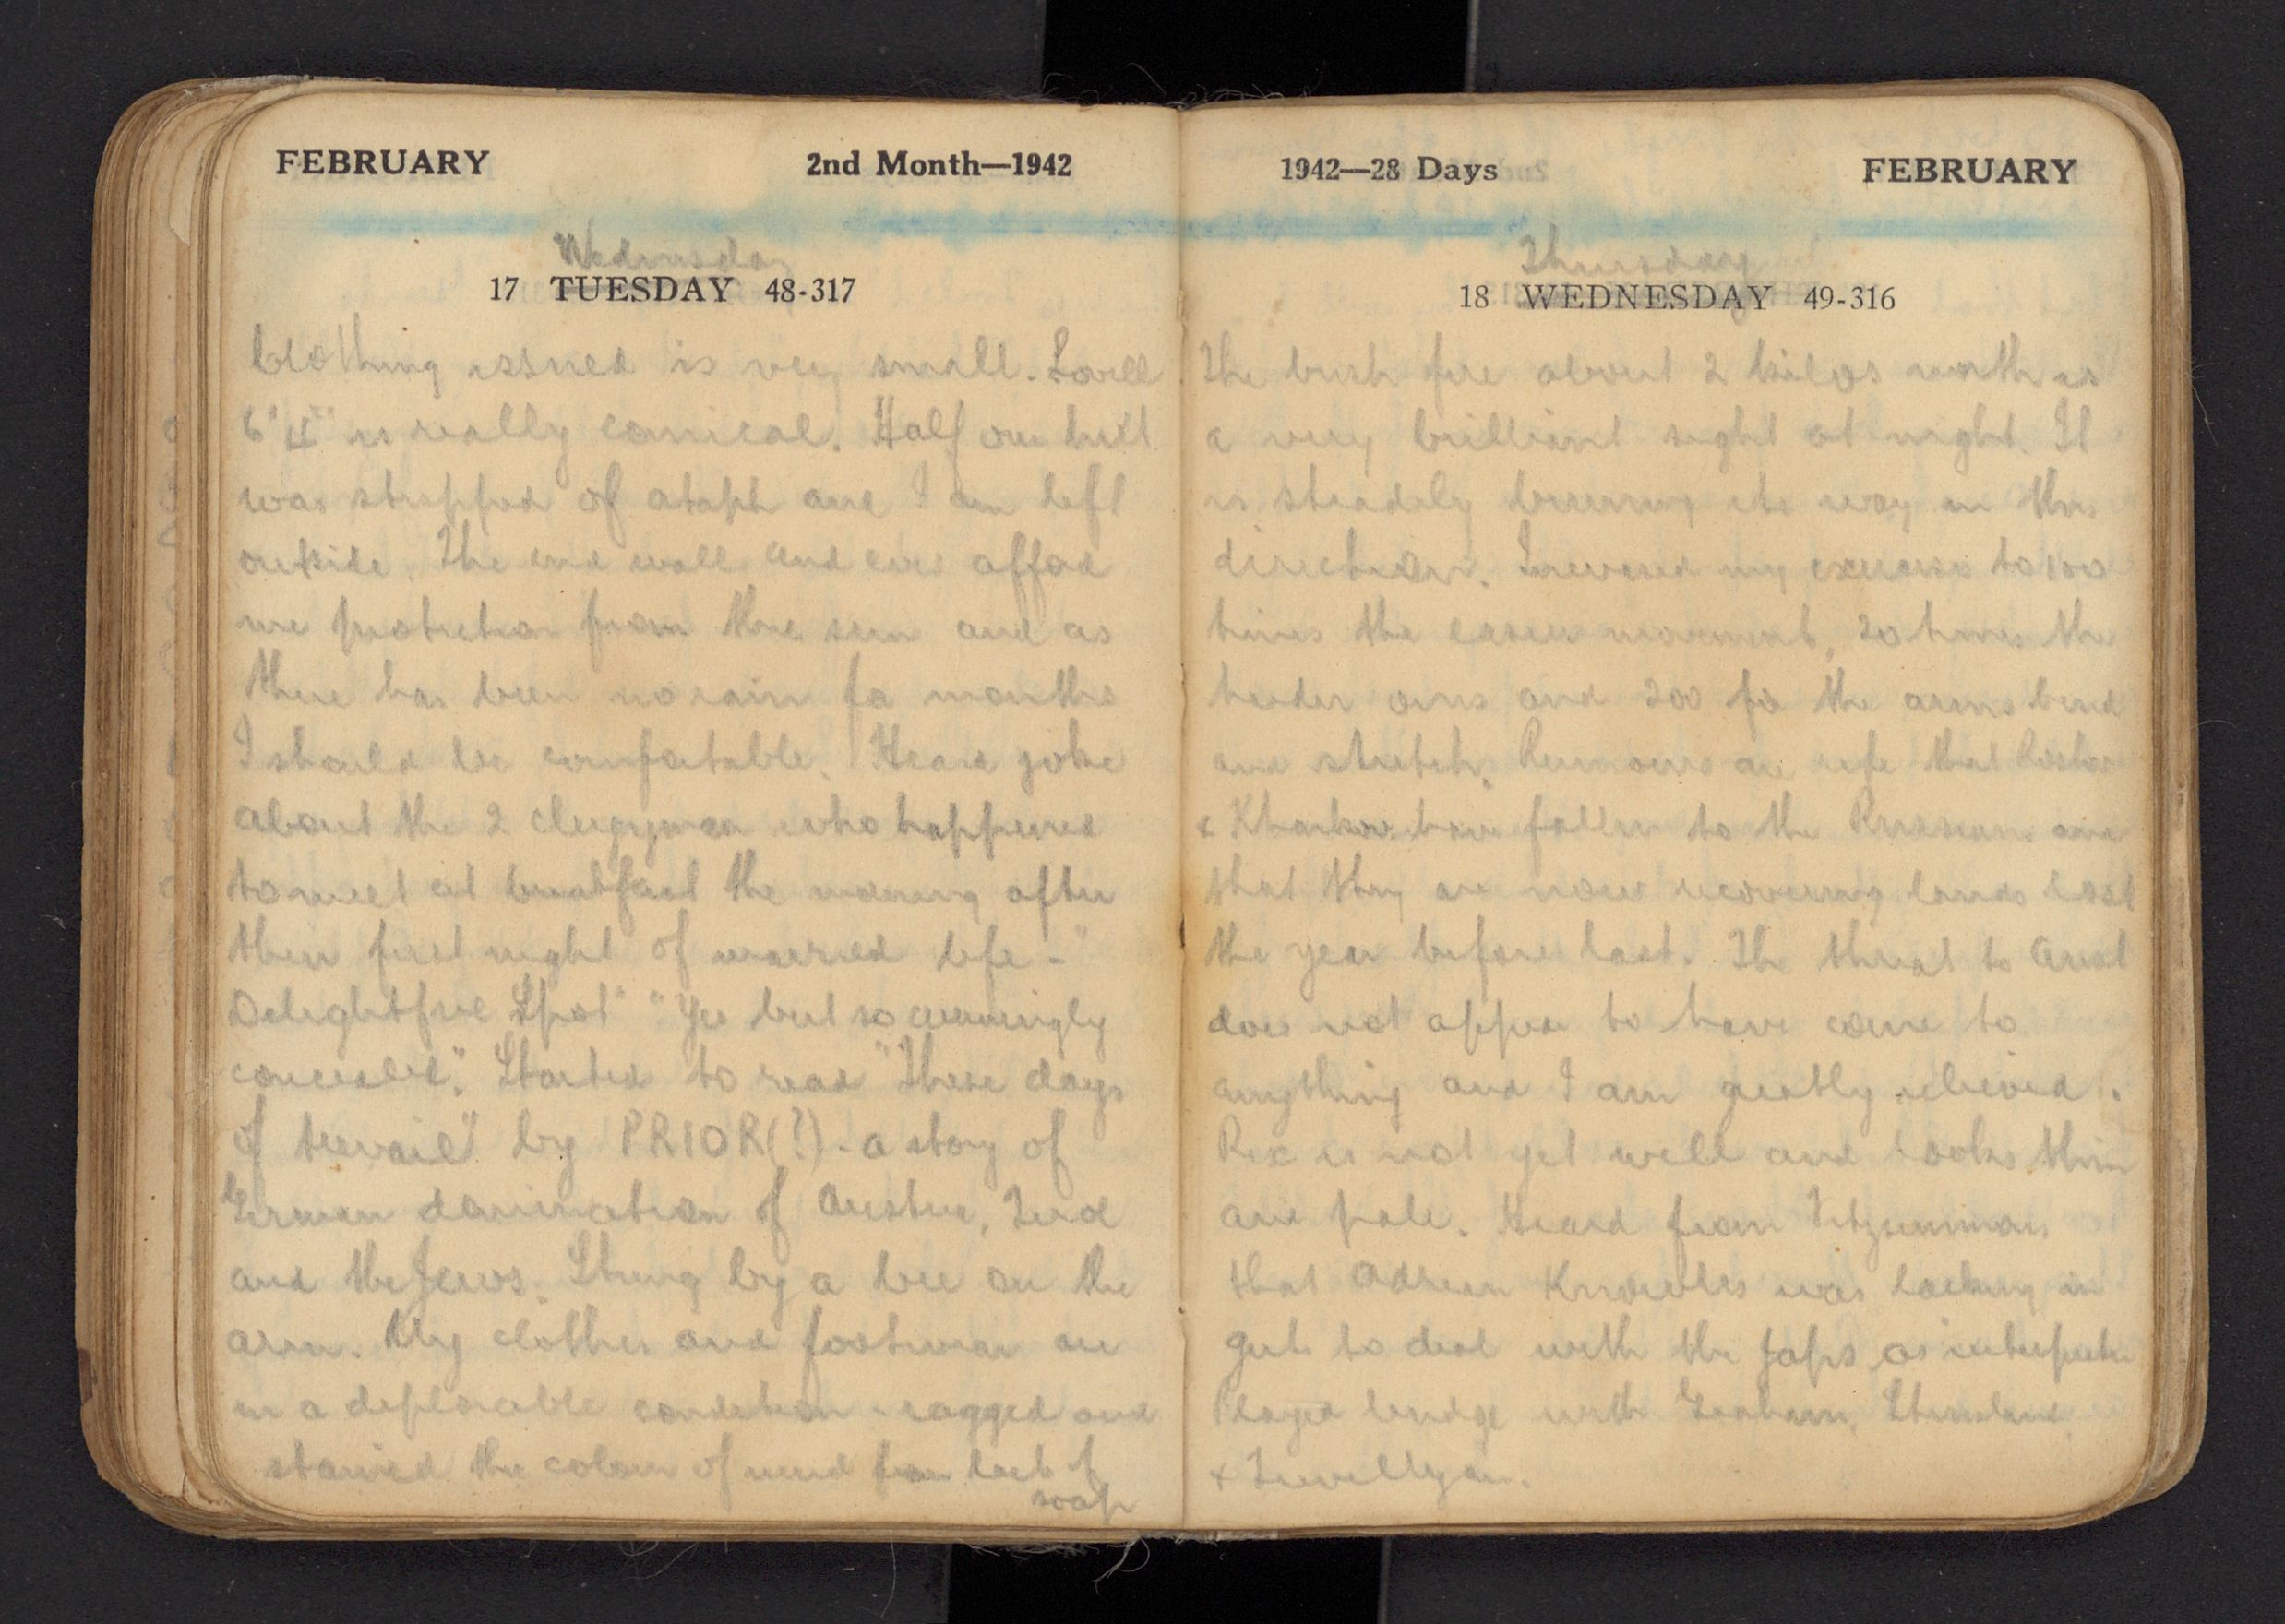 FEBRUARY 2nd Month—1942
Wednesday
17 TUESDAY 48-317
Clothing issued is very small. Lovell
6' 4" is really comical. Half our hut
was stripped of ataph and I am left
outside. The end wall and eves afford
me protection from the sun and as
there has been no rain for months
I should be comfortable. Heard joke
about the 2 clergymen who happened
to meet at breakfast the morning after
their first night of married life - "
Delightful Spot" "Yes but so cunningly
concealed". Started to read "These days
of travail" by PRIOR(?) - a story of
German domination of Austria,
and the Jews. Stung by a bee on the
arm. My clothes and footwear are
in a deplorable condition - ragged and
stained the colour of mud from lack of
soap
1942—28 Days FEBRUARY
Thursday
18 WEDNESDAY 49-316
The bush fire about 2 kilos north is
a very brilliant sight at night. It
is steadily burning its way in this
direction. Increased my exercise to 100
times the easier movement, 20 times the
harder ones and 200 for the arms bend
and stretch. Rumours are rife that Rostov
& Kharkov have fallen to the Russians and
that they are now recovering lands lost
the year before last. The threat to Aust
does not appear to have come to
anything and I am greatly relieved.
Rex is not yet well and looks thin
and pale. Heard from
that Adrian Knowles was lacking in
guts to deal with the Japs as interpreter
Played bridge with Graham,
& Llewellyn.